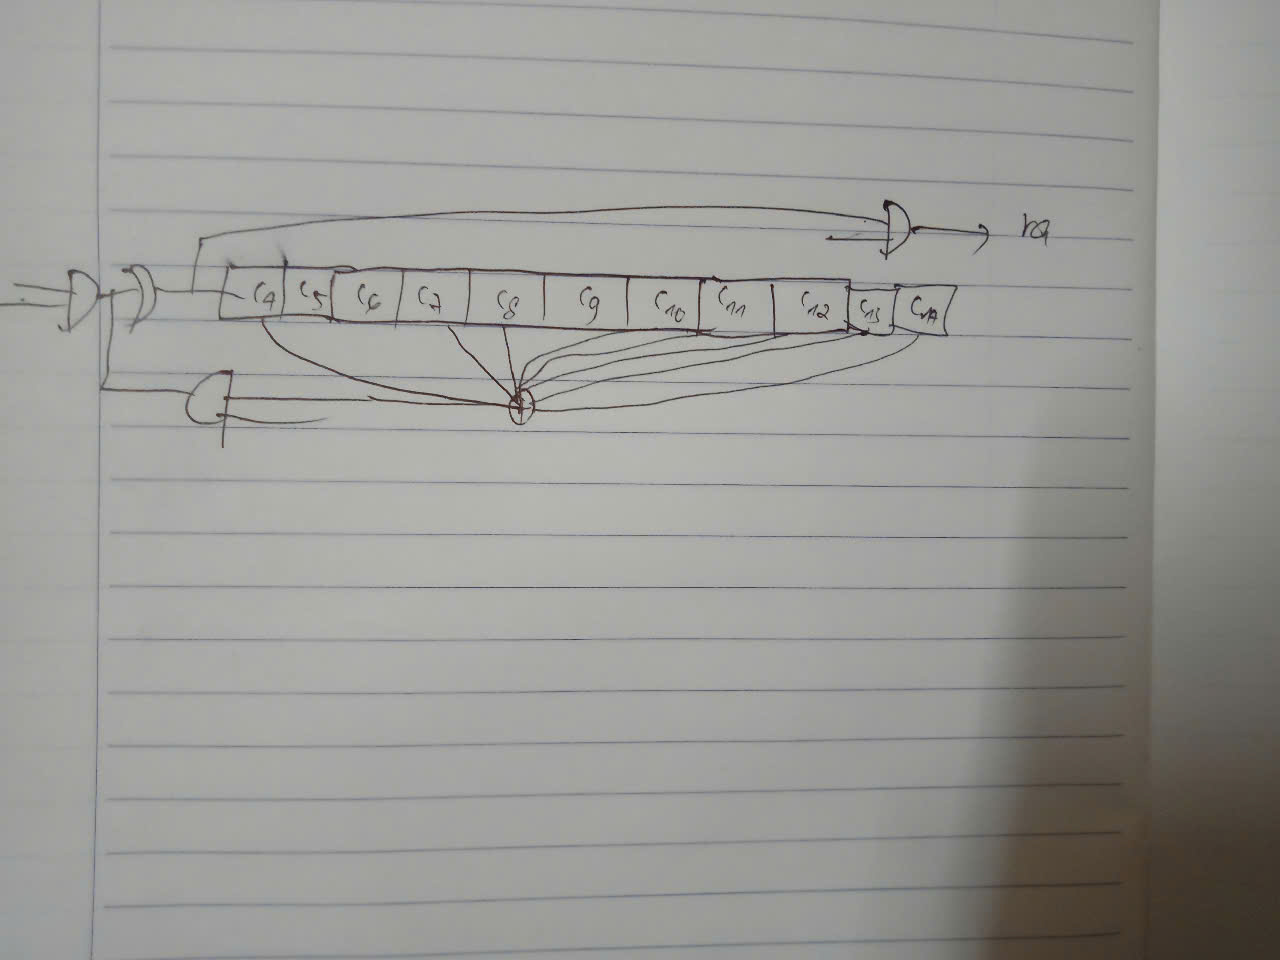 C4 C5 C6 C7 C8 C9 C10 C11 C12 C13 C14